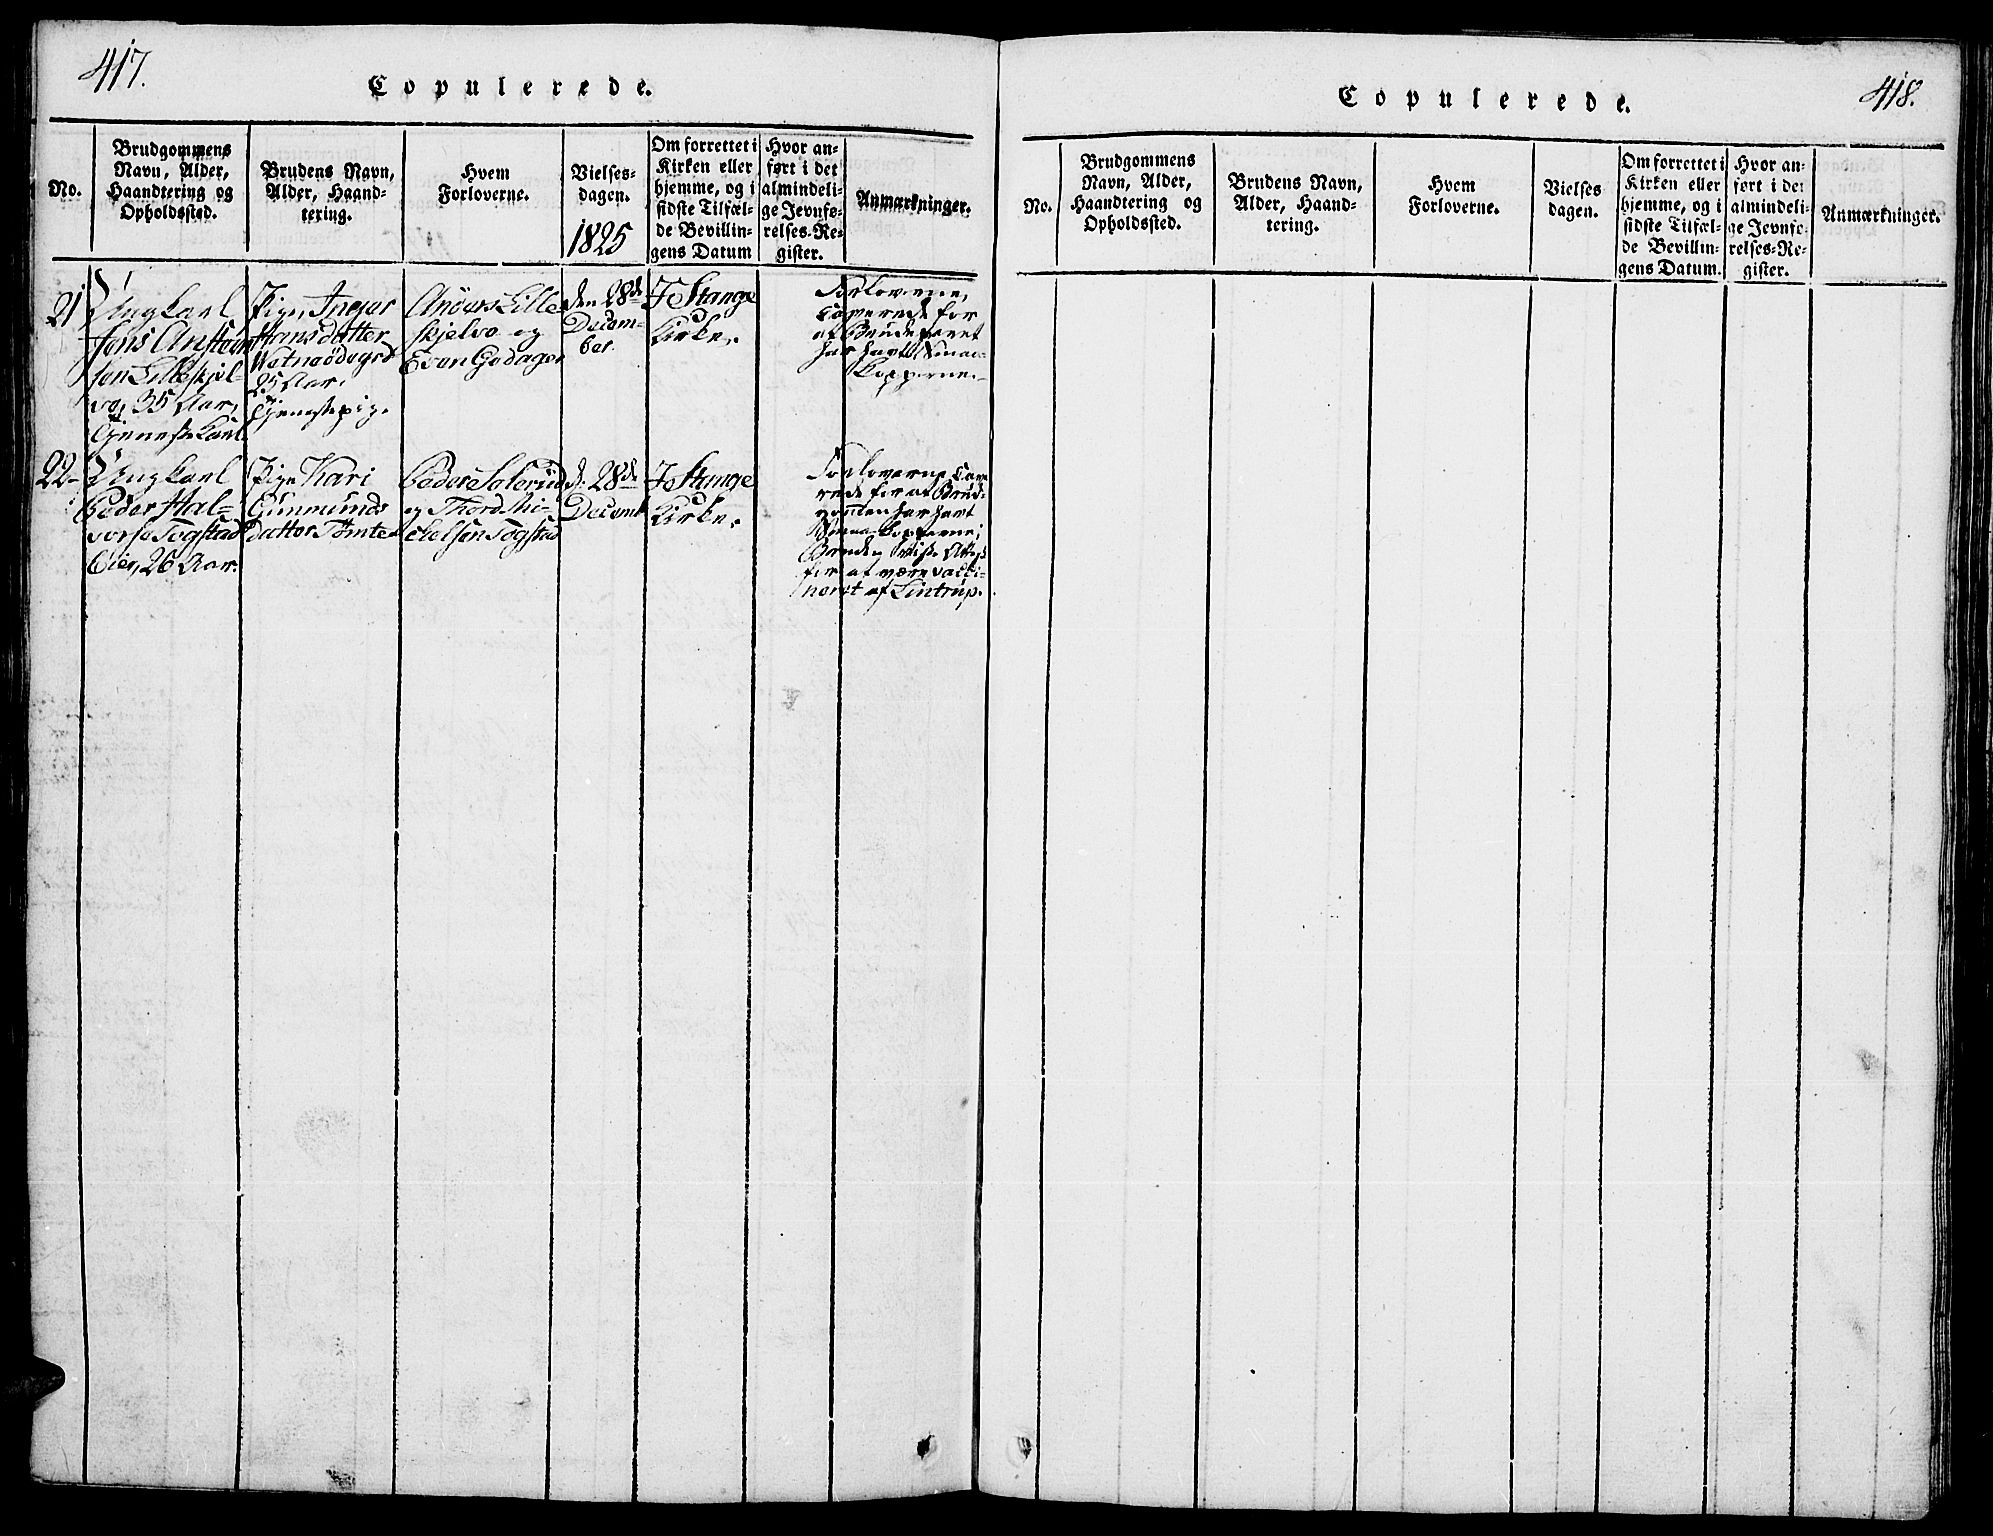 417.
Copulerede.
No.
Brudgommens
Navn, Alder,
Haandtering og
Opholdssted.
Brudens Navn,
Alder, Haand-
tering.
Hvem
Forloverne.
Vielses-
dagen.
1825
Om forrettet i
Kirken eller
hjemme, og i
sidste Tilfæl-
de Bevillin-
gens Datum
Hvor an-
ført i det
almindeli-
ge Jevnfø-
relses-Re-
gister.
Anmærkninger.
21
Ungkarl
Anstens
sen Lilleskjel-
vo, 35 Aar,
Tjenestekarl.
Pige Inger
Hansdatter
25 Aar.
Tjenestepige.
Anders Lille
skjelvo og
Even Godager
den 28de
Decem-
ber.
I Stange
Kirke.
Forloverne
caverede for
at Brudeparret
har havt Smaa-
kopperne.
22
Ungkarl
Peder Hal-
vorss Togstad
Eier, 26 Aar.
Pige Kari
Gunmunds
datter Tømte
Peder Solerud
og Thord Mi-
chelsen Togstad
d. 28de
Decemb
I Stange
Kirke.
Forloverne cave
rede for at Brud-
gommen har havt
Smaa kopperne;
Bruden viste Attest
for at være vacci-
neret af Lintrup.
418.
Copulerede.
No.
Brudgommens
Navn, Alder,
Haandtering og
Opholdssted.
Brudens Navn,
Alder, Haand-
tering.
Hvem
Forloverne.
Vielses
dagen.
Om forrettet i
Kirken eller
hjemme, og i
sidste Tilfæl-
de Bevillin-
gens Datum.
Hvor an-
ført i det
almindeli-
ge Jevnfø-
relses-Re-
gister.
Anmærkninger.